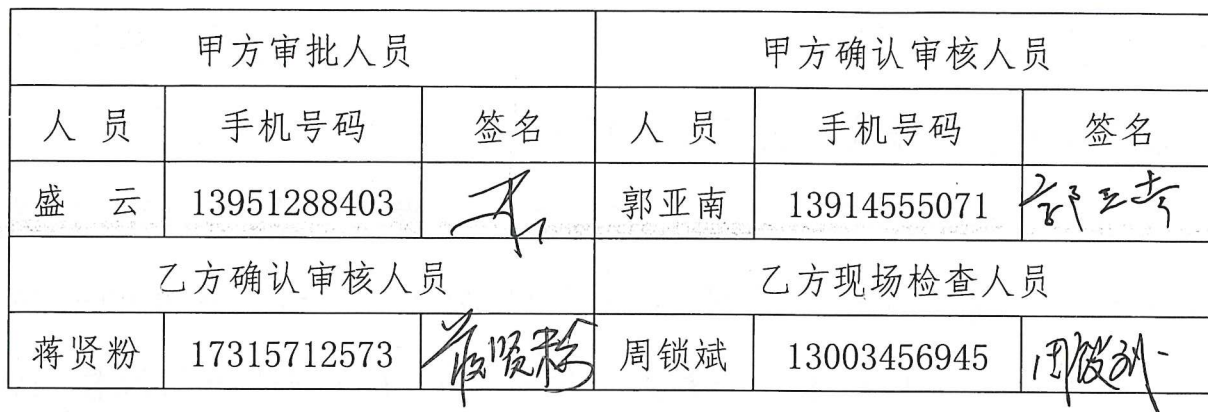 甲方审批人员 甲方确认审核人员
人 员 手机号码 签名 人 员 手机号码 签名
盛 云 13951288403 郭亚南 13914555071 郭亚南
乙方确认审核人员 乙方现场检查人员
蒋贤粉 17315712573 蒋贤粉 周锁斌 13003456945